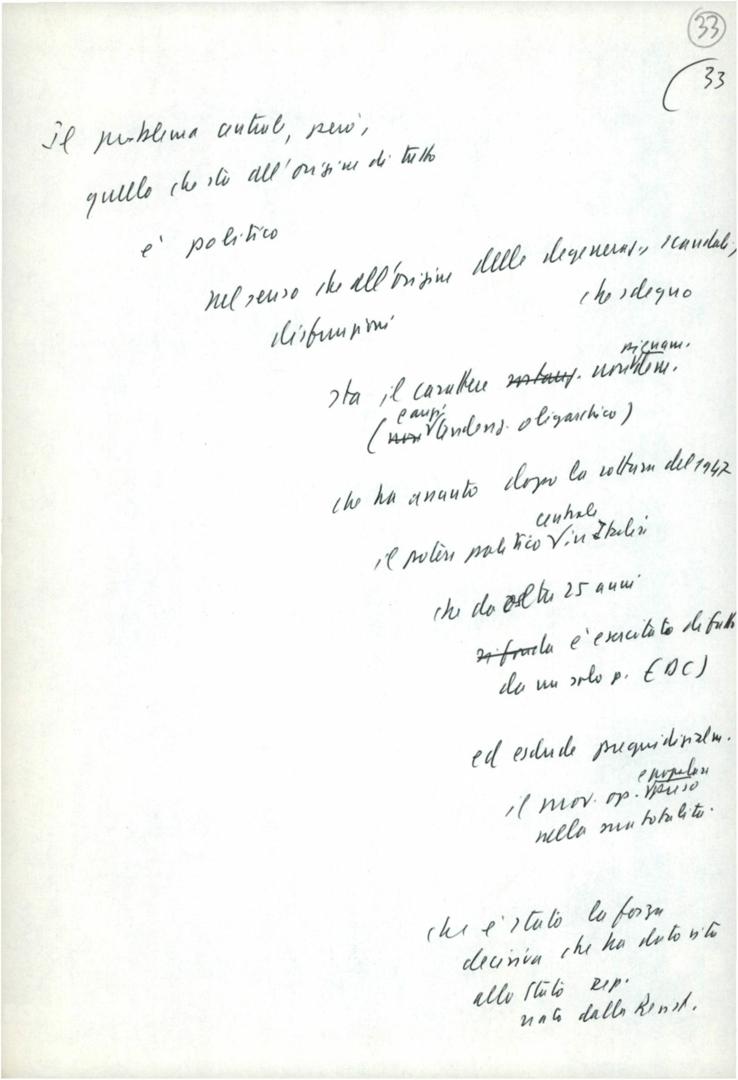 33
33
Il problema centrale, però,
quello che sta all'origine di tutto
è politico
nel senso che all'origine delle degeneraz., scandali,
disfunzioni che sdegno
sta il carattere non pienam. dem.
(e anzi tendenz. oligarchico)
che ha assunto dopo la rottura del 1947
il potere politico centrale in Italia
che da oltre 25 anni
è esercitato di fatto
da un solo p. (DC)
ed esclude pregiudizialm.
il mov. op. e popolare preso
nella sua totalità.
che è stato la forza
decisiva che ha dato vita
allo Stato rep.
nato dalla Resist.